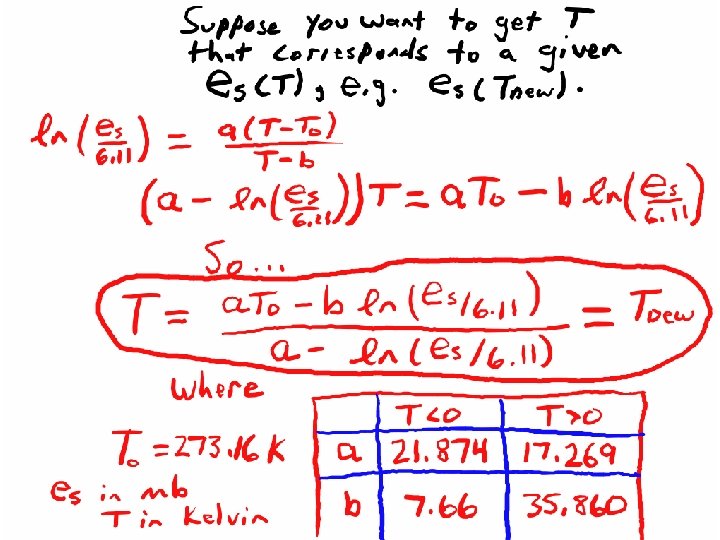 Suppose you want to get T
that corresponds to a given
es(T), e.g. es(Tdew).
ln(es/6.11) = a(T-To)/T-b
(a - ln(es/6.11))T = aTo - b ln(es/6.11)
So...
T = aTo - b ln(es/6.11)/a - ln(es/6.11) = TDew
where
To = 273.16 K
es in mb
T in Kelvin
T<0 T>0
a 21.874 17.269
b 7.66 35.860